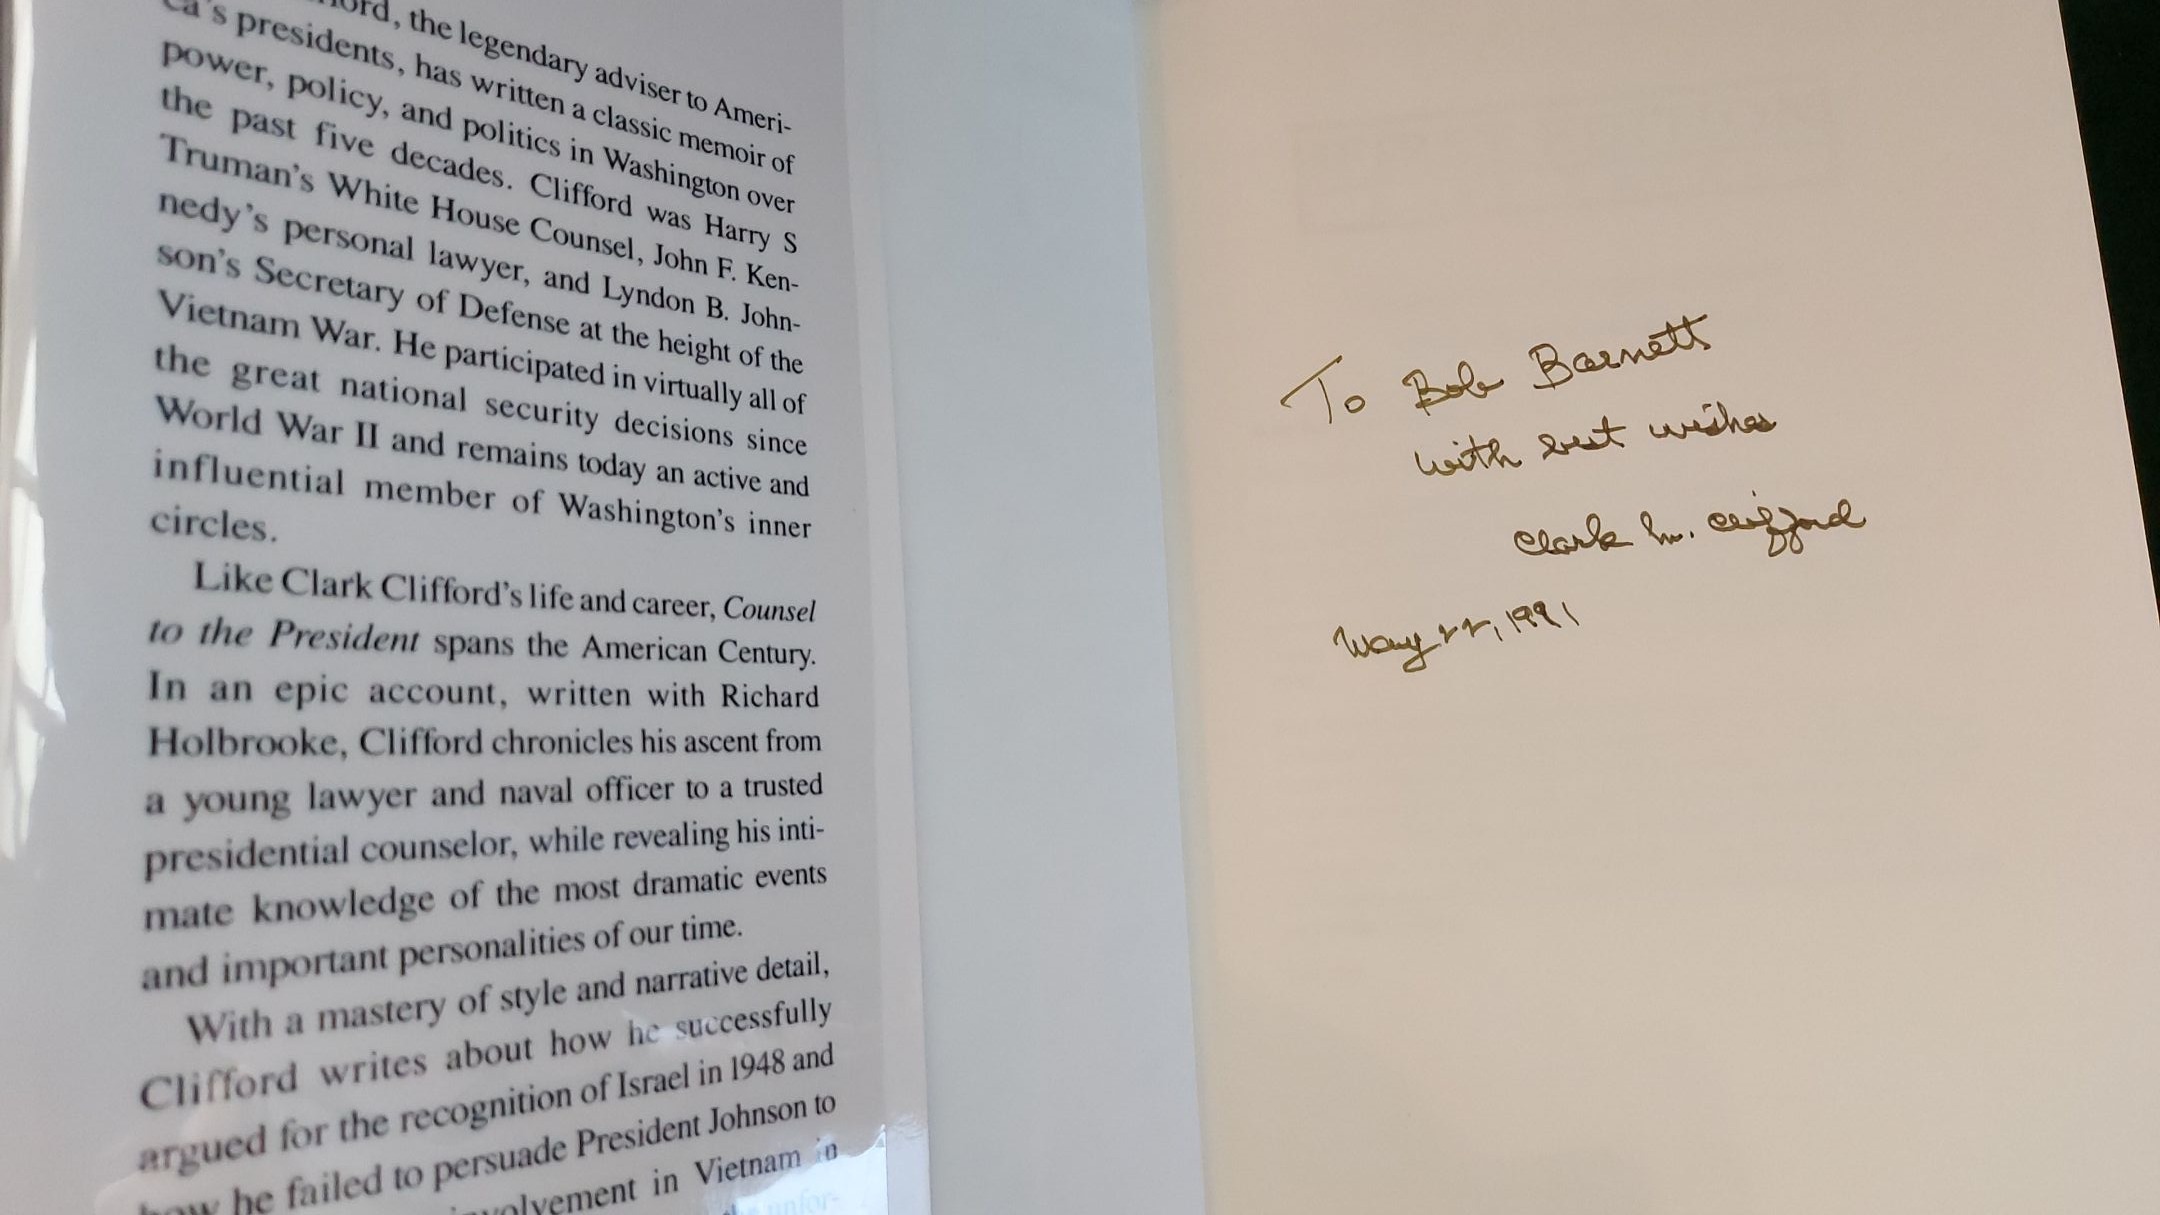 the legendary adviser to Ameri-
ca's presidents, has written a classic memoir of
power, policy, and politics in Washington over
the past five decades. Clifford was Harry S
Truman's White House Counsel, John F. Ken-
nedy's personal lawyer, and Lyndon B. John-
son's Secretary of Defense at the height of the
Vietnam War. He participated in virtually all of
the great national security decisions since
World War II and remains today an active and
influential member of Washington's inner
circles.
Like Clark Clifford's life and career, Counsel
to the President spans the American Century.
In an epic account, written with Richard
Holbrooke, Clifford chronicles his ascent from
a young lawyer and naval officer to a trusted
presidential counselor, while revealing his inti-
mate knowledge of the most dramatic events
and important personalities of our time.
With a mastery of style and narrative detail,
Clifford writes about how he successfully
argued for the recognition of Israel in 1948 and
how he failed to persuade President Johnson to
in Vietnam in
To Bob Barnett
with best wishes
Clark M. Clifford
May 22, 1991